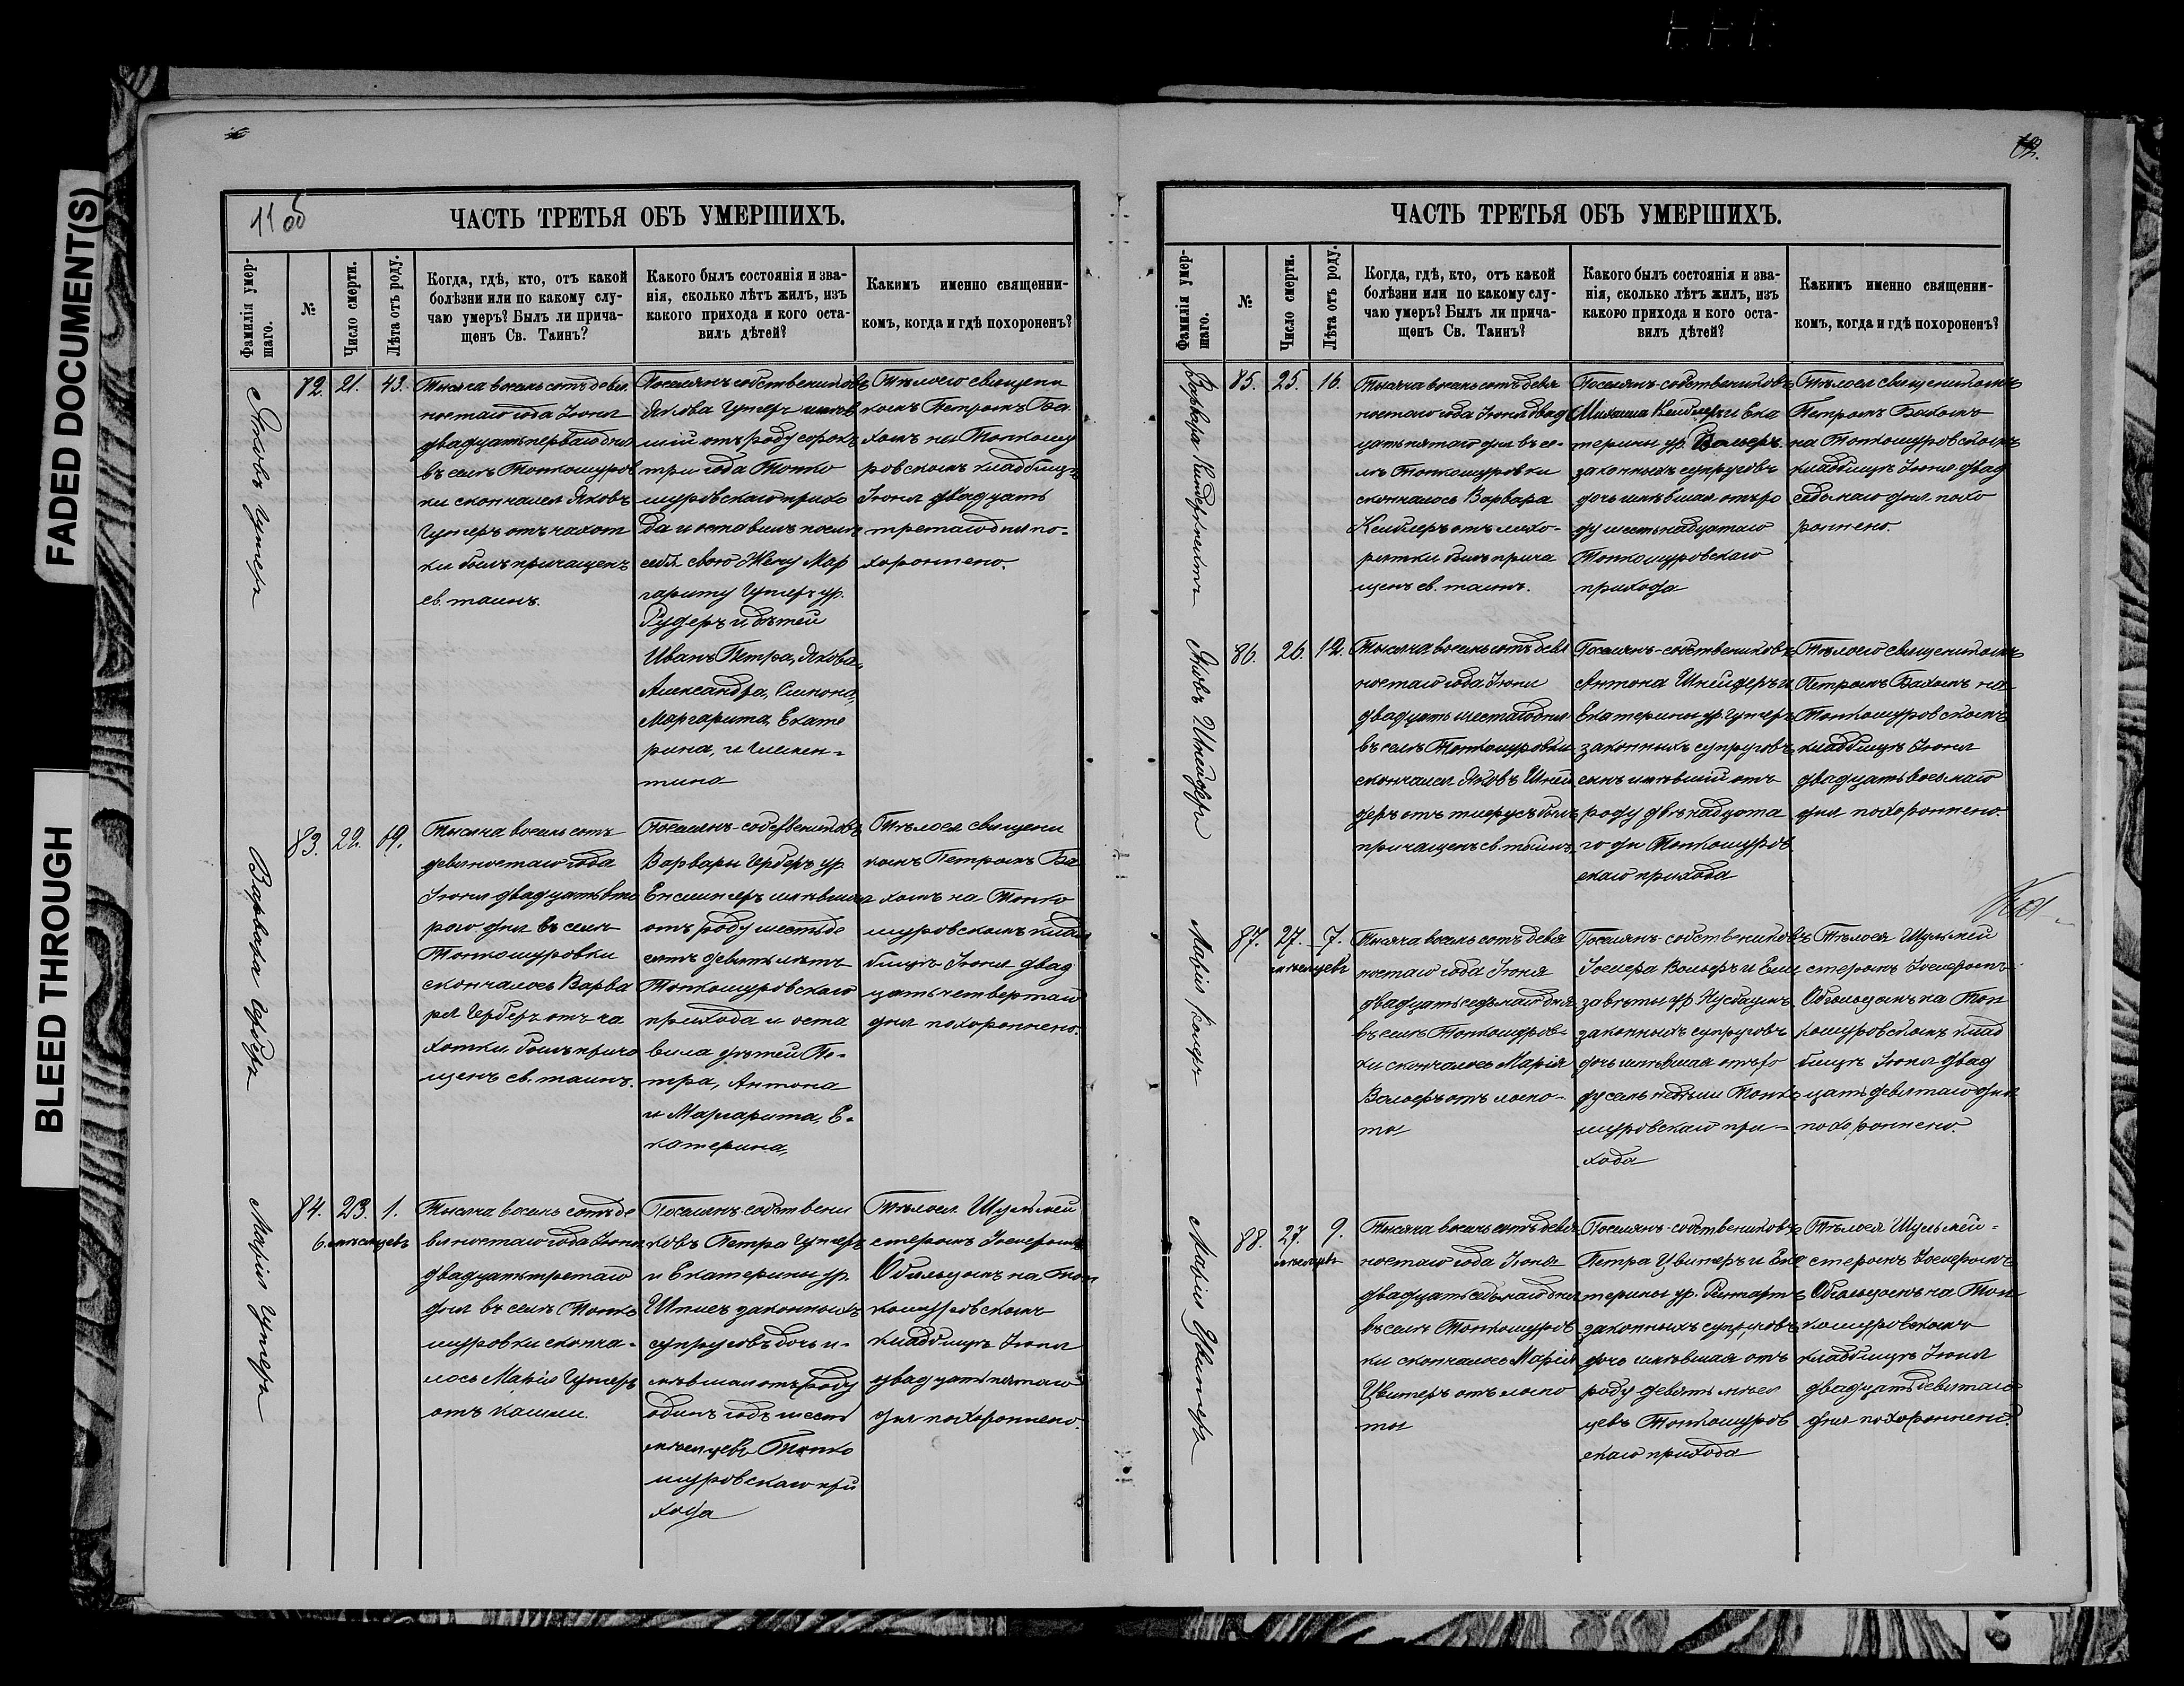 FADED DOCUMENT(S)
BLEED THROUGH
11 об
ЧАСТЬ ТРЕТЬЯ ОБЪ УМЕРШИХЪ.
Фамилія умер-
шаго.
№
Число смерти.
Лѣта отъ роду.
Когда, гдѣ, кто, отъ какой
болѣзни или по какому слу-
чаю умеръ? Былъ ли прича-
щенъ Св. Таинъ?
Какого былъ состоянія и зва-
нія, сколько лѣтъ жилъ, изъ
какого прихода и кого оста-
вилъ дѣтей?
Какимъ именно священни-
комъ, когда и гдѣ похороненъ?
Яковъ
82. 21. 43.
Тысяча восемь сотъ девя
ностаго года Іюня
двадцать перваго дня
въ селѣ Топкошуров
ки скончался Яковъ
отъ чахот
ки былъ причащенъ
св. таинъ.
Поселянъ собствениковъ
Якова
шій отъ роду сорокъ
три года Топко
шуровскаго прихо
да и оставилъ послѣ
себя свою Жену Мар
гариту ур.
и дѣтей
Иванъ Петра, Якова,
Александра, Симона,
Маргарита, Екате
рина, и Климен-
тина
Тѣлоего священи
комъ Петромъ Ба
хомъ на Топкошу
ровскомъ кладбищѣ
Іюня двадцать
третаго дня по-
хороннено.
Варвара Герберъ
83. 22. 69.
Тысяча восемь сотъ
девяностаго года
Іюня двадцать вто
раго дня въ селѣ
Топкошуровки
скончалось Варва
ра Герберъ отъ ча
хотки былъ прича
щенъ св. таинъ.
Поселянъ-собствениковъ
Варвары Герберъ ур.
имѣвшая
отъ роду шестьде
сятъ девять лѣтъ
Топкошуровскаго
прихода и оста
вила дѣтей Пе-
тра, Антона
и Маргарита, Е-
катерина,
Тѣлоея священи
комъ Петромъ Ба
хомъ на Топко
шуровскомъ клад
бищѣ Іюня двад
цать четвертаго
дня похороннено.
Марія
84. 23. 1.
6. мѣсяцевъ
Тысяча восемь сотъ де
вяностаго года Іюня
двадцать третаго
дня въ селѣ Топко
шуровки сконча-
лось Марія
отъ кашли.
Поселянъ-собствени
ковъ Петра
и Екатерины ур.
законныхъ
супруговъ дочь и-
мѣвшая отъ роду
одинъ годъ шесть
мѣсяцевъ Топко
шуровскаго при
хода
Тѣлоея Шульмей
стеромъ Іосифомъ
на Топ
кошуровскомъ
кладбищѣ Іюня
двадцать пятаго
дня похороннено.
12.
ЧАСТЬ ТРЕТЬЯ ОБЪ УМЕРШИХЪ.
Фамилія умер-
шаго.
№
Число смерти.
Лѣта отъ роду.
Когда, гдѣ, кто, отъ какой
болѣзни или по какому слу-
чаю умеръ? Былъ ли прича-
щенъ Св. Таинъ?
Какого былъ состоянія и зва-
нія, сколько лѣтъ жилъ, изъ
какого прихода и кого оста-
вилъ дѣтей?
Какимъ именно священни-
комъ, когда и гдѣ похороненъ?
Варвара
85. 25. 16.
Тысяча восемь сотъ девя
ностаго года Іюня двад
цать пятаго дня въ се-
лѣ Топкошуровки
скончалось Варвара
отъ лихо-
радки былъ прича
щенъ св. таинъ.
Поселянъ-собствениковъ
Михаила и Ека
терины ур. Вольфъ
законныхъ супруговъ
дочь имѣвшая отъ ро
ду шестьнадцатаго
Топкошуровскаго
прихода
Тѣлоея священикомъ
Петромъ Бахомъ
на Топкошуровскомъ
кладбищѣ Іюня двад
седьмаго дня похо
роннено.
Яковъ Шнейдеръ
86. 26. 12.
Тысяча восемь сотъ девя
ностаго года Іюня
двадцать шестаго дня
въ селѣ Топкошуровки
скончался Яковъ Шней
деръ отъ тифусъ былъ
причащенъ св. таинъ.
Поселянъ-собствениковъ
Антона Шнейдеръ и
Екатерины ур.
законныхъ супруговъ
сынъ имѣвшій отъ
роду двѣнадцата
го дн Топкошуров
скаго прихода
Тѣлоего священикомъ
Петромъ Бахомъ на
Топкошуровскомъ
кладбищѣ Іюня
двадцать восьмаго
дня похороннено.
Марія Вольфъ
87. 27. 7.
мѣсяцевъ
Тысяча восемь сотъ девя
ностаго года Іюня
двадцать седьмаго дня
въ селѣ Топкошуров-
ки скончалось Марія
Вольфъ отъ лоспо-
ты
Поселянъ-собствениковъ
Іосифа Вольфъ и Ели
заветы ур. Нусбаумъ
законныхъ супруговъ
дочь имѣвшая отъ ро
ду семь недѣли Топко
шуровскаго при-
хода
Тѣлоея Шульмей
стеромъ Іосифомъ
на Топ
кошуровскомъ клад
бищѣ Іюня двад
цать девятаго дня
похороннено.
Марія Цвингеръ
88. 27. 9.
мѣсяцевъ
Тысяча восемь сотъ девя
ностаго года Іюня
двадцать седьмаго дня
въ селѣ Топкошуров
ки скончалось Марія
Цвингеръ отъ лоспо
ты
Поселянъ-собствениковъ
Петра Цвингеръ и Ека
терины ур.
законныхъ супруговъ
дочь имѣвшая отъ
роду девять мѣся
цевъ Топкошуров
скаго прихода
Тѣлоея Шульмей-
стеромъ Іосифомъ
на Топ
кошуровскомъ
кладбищѣ Іюня
двадцать девятаго
дня похороннено.